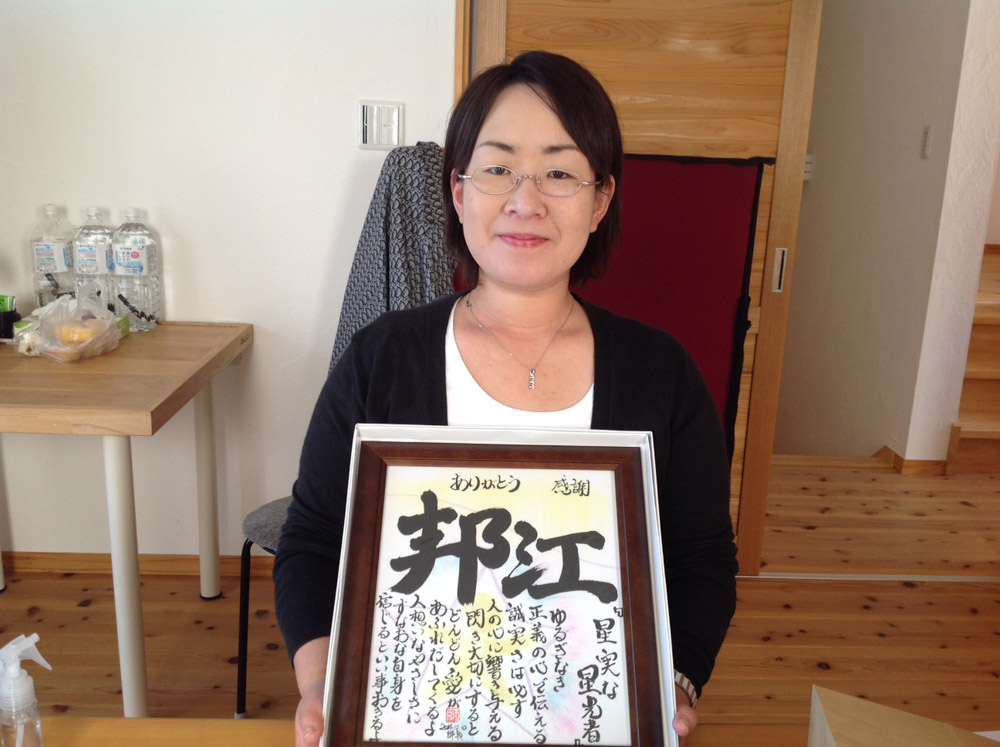 ありがとう 感謝
邦江
『星実な
星光者』
ゆるぎなき
正義の心を伝える
誠実さは必ず
人の心に響き与える
閃き大切にすると
どんどん愛が
あふれだしてくるよ
人想いなやさしさに
すなおな自身を
信じるという事おきるよ